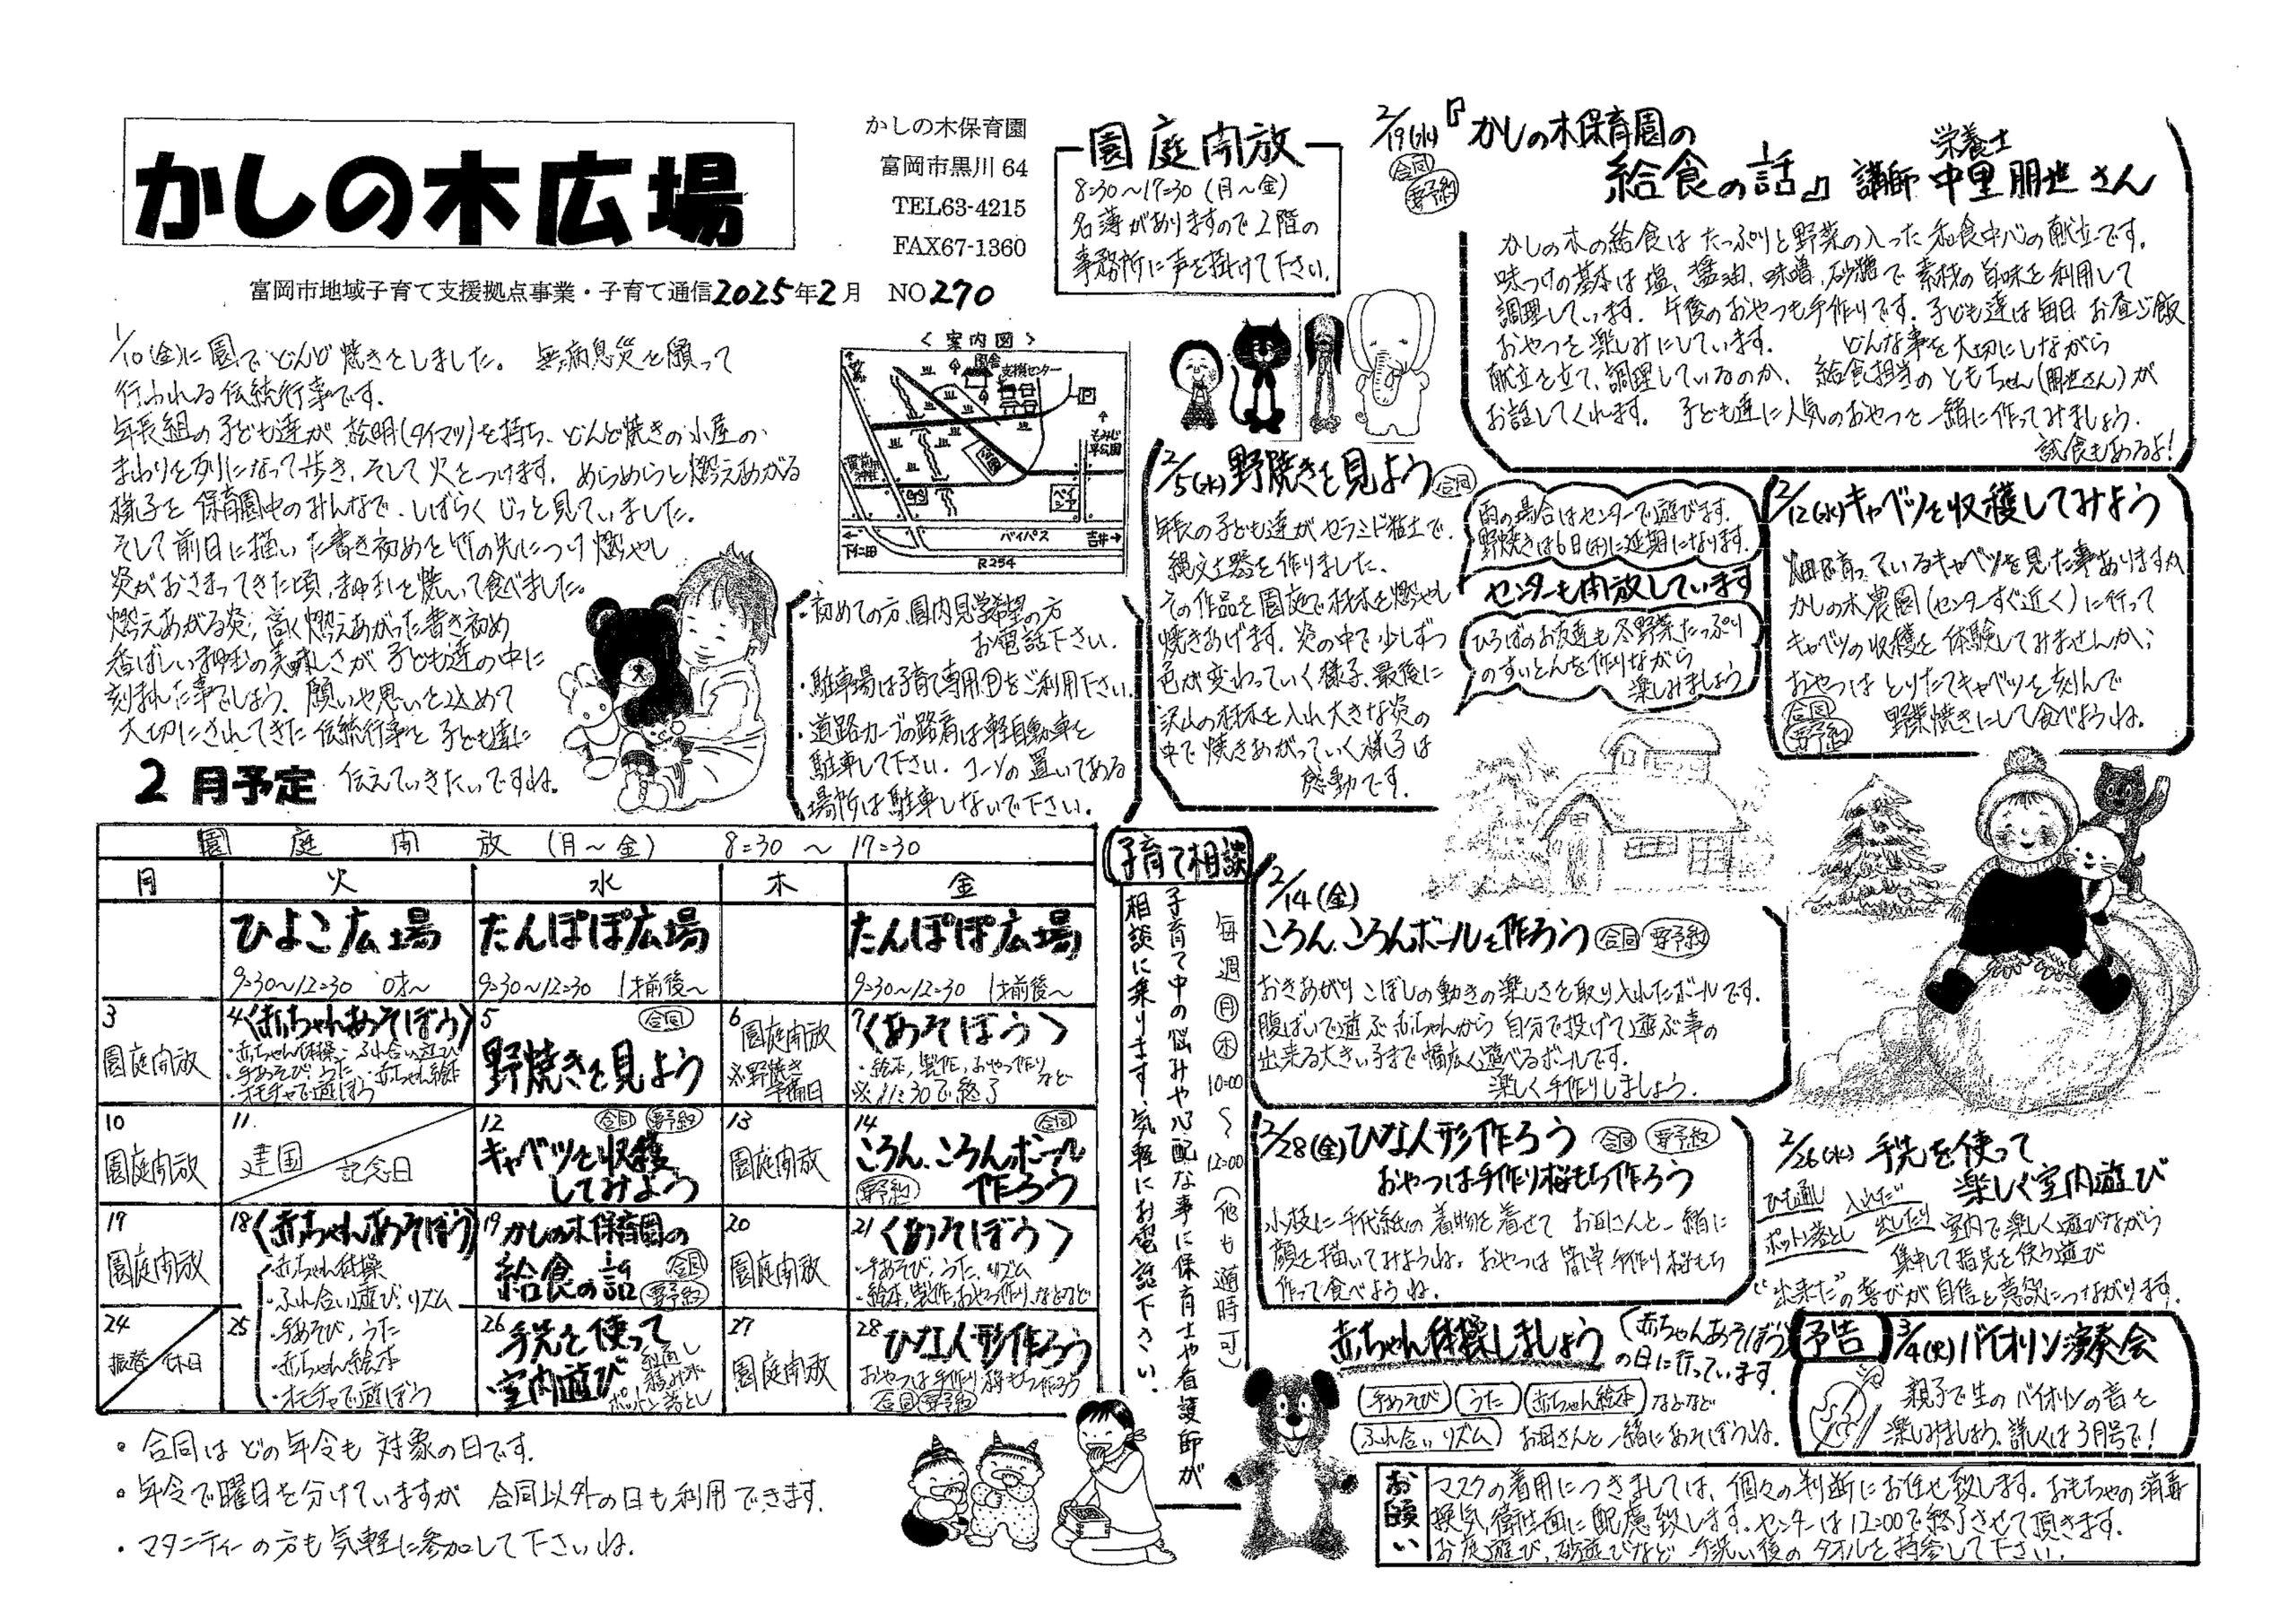 かしの木広場
かしの木保育園
富岡市黒川 64
TEL63-4215
FAX67-1360
富岡市地域子育て支援拠点事業・子育て通信2025年2月 NO270
1/10(金)に園でどんど焼きをしました。 無病息災を願って
行なわれる伝統行事です。
年長組の子ども達が 松明(タイマツ)を持ち、どんど焼きの小屋の
まわりを列になって歩き、そして火をつけます。めらめらと燃えあがる
様子を 保育園中のみんなで、しばらく じっと見ていました。
そして前日に描いた書き初めを竹の先につけ燃やし
炎がおさまってきた頃、まゆ玉を焼いて食べました。
燃えあがる炎、高く燃えあがった書き初め
香ばしいまゆ玉の美味しさが 子ども達の中に
刻まれた事でしょう。願いや思いを込めて
大切にされてきた 伝統行事を 子ども達に
伝えていきたいですね。
園庭開放
8:30～17:30 (月～金)
名簿がありますので2階の
事務所に声を掛けて下さい。
〈案内図〉
園舎
支援センター
P
もみじ平公園
バイパス
下仁田
吉井
R254
・初めての方、園内見学希望の方
お電話下さい。
・駐車場は子育て専用Pをご利用下さい。
・道路カーブの路肩は軽自動車を
駐車して下さい。コーンの置いてある
場所は駐車しないで下さい。
2/19(水)『かしの木保育園の
給食の話』 講師 栄養士 中里朋世さん
合同
要予約
かしの木の給食は たっぷりと野菜の入った和食中心の献立です。
味つけの基本は塩、醤油、味噌、砂糖で 素材の旨味を利用して
調理しています。午後のおやつも手作りです。子ども達は毎日 お昼ご飯
おやつを楽しみにしています。 どんな事を大切にしながら
献立を立て、調理しているのか、給食担当の ともちゃん(朋世さん)が
お話してくれます。 子ども達に人気のおやつを一緒に作ってみましょう。
試食もあるよ!
2/5(水)野焼きを見よう 合同
年長の子ども達がセラミド粘土で、
縄文土器を作りました。
その作品を園庭で材木を燃やし
焼きあげます。炎の中で少しずつ
色が変わっていく様子、最後に
沢山の材木を入れ大きな炎の
中で焼きあがっていく様子は
感動です。
雨の場合はセンターで遊びます。
野焼きは6日(木)に延期になります。
センターも開放しています
ひろばのお友達も冬野菜たっぷり
のすいとんを作りながら
楽しみましょう
2/12(水)キャベツを収穫してみよう
畑で育っているキャベツを見た事ありますか
かしの木農園(センターすぐ近く)に行って
キャベツの収穫を体験してみませんか?
おやつは とりたてキャベツを刻んで
野菜焼きにして食べようね。
合同
要予約
2月予定
園庭開放 (月～金) 8:30～17:30
月 火 水 木 金
ひよこ広場 たんぽぽ広場 たんぽぽ広場
9:30～12:30 0才～ 9:30～12:30 1才前後～ 9:30～12:30 1才前後～
3
園庭開放
4 〈赤ちゃんあそぼう〉
・赤ちゃん体操・ふれ合い遊び
・手あそび、うた・赤ちゃん絵本
・オモチャで遊ぼう
5 合同
野焼きを見よう
6 園庭開放
※野焼き
予備日
7 〈あそぼう〉
・絵本、製作、おやつ作り
など
※11:30で終了
10
園庭開放
11
建国記念日
12 合同 要予約
キャベツを収穫
してみよう
13
園庭開放
14 合同
ころん、ころんボール
要予約 作ろう
17
園庭開放
18 〈赤ちゃんあそぼう〉
19 かしの木保育園の
給食の話
合同
要予約
20
園庭開放
21 〈あそぼう〉
・手あそび、うた、リズム
・絵本、製作、おやつ作り、などなど
24
振替休日
25
・赤ちゃん体操
・ふれ合い遊び、リズム
・手あそび、うた
・赤ちゃん絵本
・オモチャで遊ぼう
26 手先を使って
室内遊び
ポットン落とし
27
園庭開放
28 ひな人形作ろう
おやつは手作り桜もち作ろう
合同 要予約
・合同はどの年令も対象の日です。
・年令で曜日を分けていますが 合同以外の日も利用できます。
・マタニティーの方も気軽に参加して下さいね。
子育て相談
毎週月木 10:00～12:00(他も随時可)
子育て中の悩みや心配な事に保育士や看護師が
相談に乗ります。気軽にお電話下さい。
2/14(金)
ころん、ころんボールを作ろう 合同 要予約
おきあがりこぼしの動きの楽しさを取り入れたボールです。
腹ばいで遊ぶ赤ちゃんから 自分で投げて遊ぶ事の
出来る大きい子まで幅広く遊べるボールです。
楽しく手作りしましょう。
2/28(金)ひな人形作ろう 合同 要予約
おやつは手作り桜もち作ろう
小枝に千代紙の着物を着せて お母さんと一緒に
顔を描いてみようね。おやつは 簡単手作り桜もち
作って食べようね。
2/26(水) 手先を使って
楽しく室内遊び
ひも通し 入れたり
ポットン落とし 出したり
室内で楽しく遊びながら
集中して指先を使う遊び
“出来た”の喜びが自信と意欲につながります。
赤ちゃん体操しましょう 〈赤ちゃんあそぼう〉
の日に行っています。
手あそび うた 赤ちゃん絵本 などなど
ふれ合い リズム お母さんと一緒にあそぼうね。
予告 3/4(火)バイオリン演奏会
親子で生のバイオリンの音を
楽しみましょう。詳しくは3月号で!
お願い
マスクの着用につきましては、個々の判断にお任せ致します。おもちゃの消毒
換気、衛生面に配慮致します。センターは12:00で終了させて頂きます。
お庭遊び、砂遊びなど 手洗い後のタオルを持参して下さい。